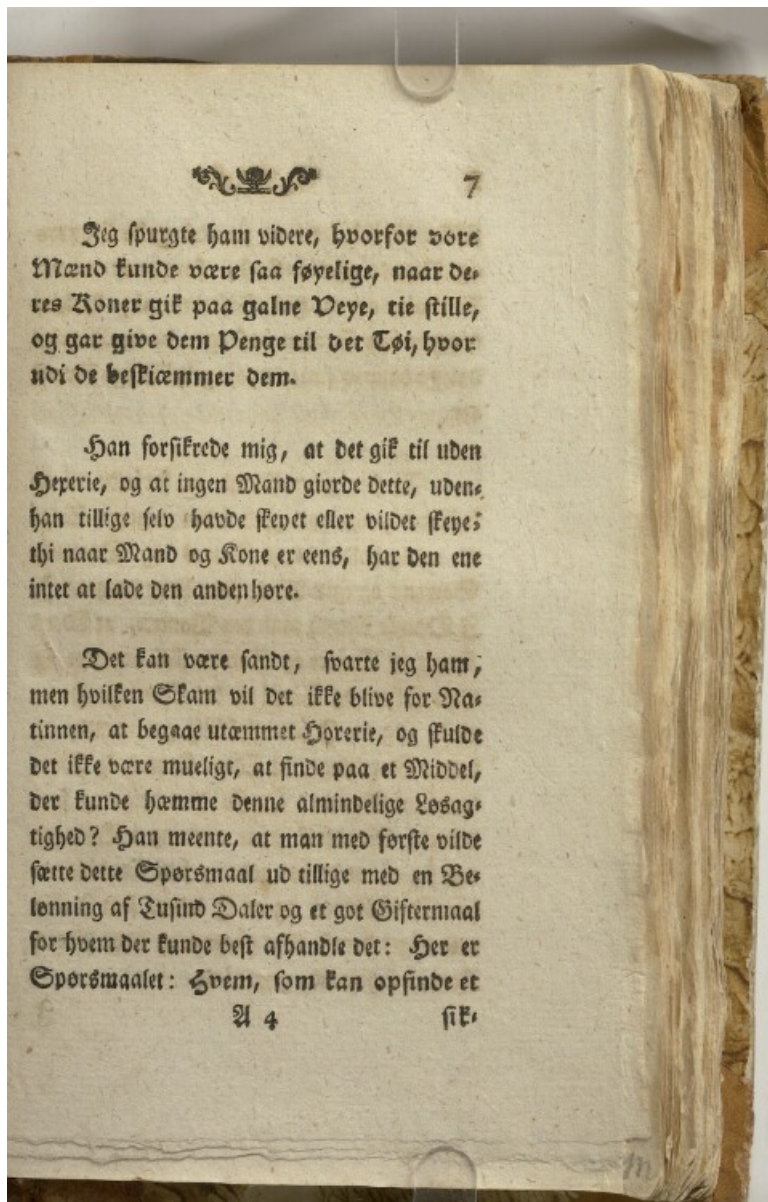 7
Jeg spurgte ham videre, hvorfor vore
Mænd kunde være saa føyelige, naar de-
res Koner gik paa galne Veye, tie stille,
og gar give dem Penge til det Tøi, hvor
udi de beskiæmmer dem.
Han forsikrede mig, at det gik til uden
Hexerie, og at ingen Mand giorde dette, uden-
han tillige selv havde skeyet eller vildet skeye;
thi naar Mand og Kone er eens, har den ene
intet at lade den anden høre.
Det kan være sandt, svarte jeg ham,
men hvilken Skam vil det ikke blive for Na-
tinnen, at begaae utæmmet Horerie, og skulde
det ikke være mueligt, at finde paa et Middel,
der kunde hæmme denne almindelige Løsag-
tighed? Han meente, at man med første vilde
sætte dette Spørsmaal ud tillige med en Be-
lønning af Tusind Daler og et got Giftermaal
for hvem der kunde best afhandle det: Her er
Spørsmaalet: Hvem, som kan opfinde et
A 4 sik-